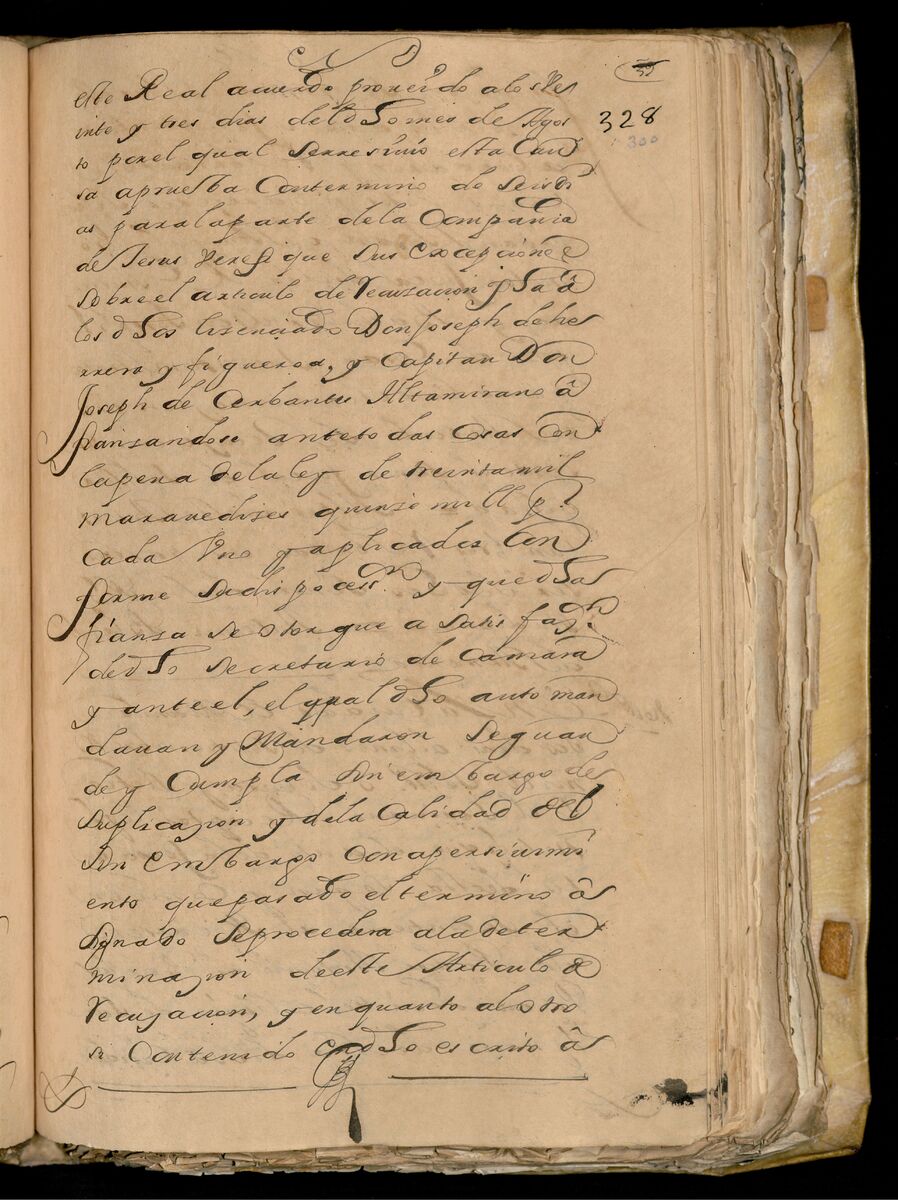 39
328
300
este Real acuerdo proveido a los Ve
inte y tres dias del dho mes de Agos
to por el qual serresiuió esta Cau
sa aprueba Contermino de seis di
as paralaparte dela Compañia
de Jesus Verefique sus excepciones
sobre el articulo de recuzacion
los dhos lisenciado Don Joseph de he
rrera y figueroa, y Capitan Don
Joseph de Cerbantes Altamirano â
fianzandose antetodas Cosas Con
lapena delaley de treintamil
marauedises quinse mill p.r
Cada Vno y aplicados Con
forme su dispocss.n y que dha
fianza se otorgue a satisfaz.n
dedho secretario de Camara
y anteel, el qual dho auto man
dauan y Mandaron se guar
de y Cumpla sin embargo de
suplicazion y dela Calidad del
sin embargo Conapersiuimi
ento quepasado eltermino âs
signado seprocedera aladeter
minazion deeste Articulo de
recuzacion, y en quanto alotro
si Contenido endho escrito âs